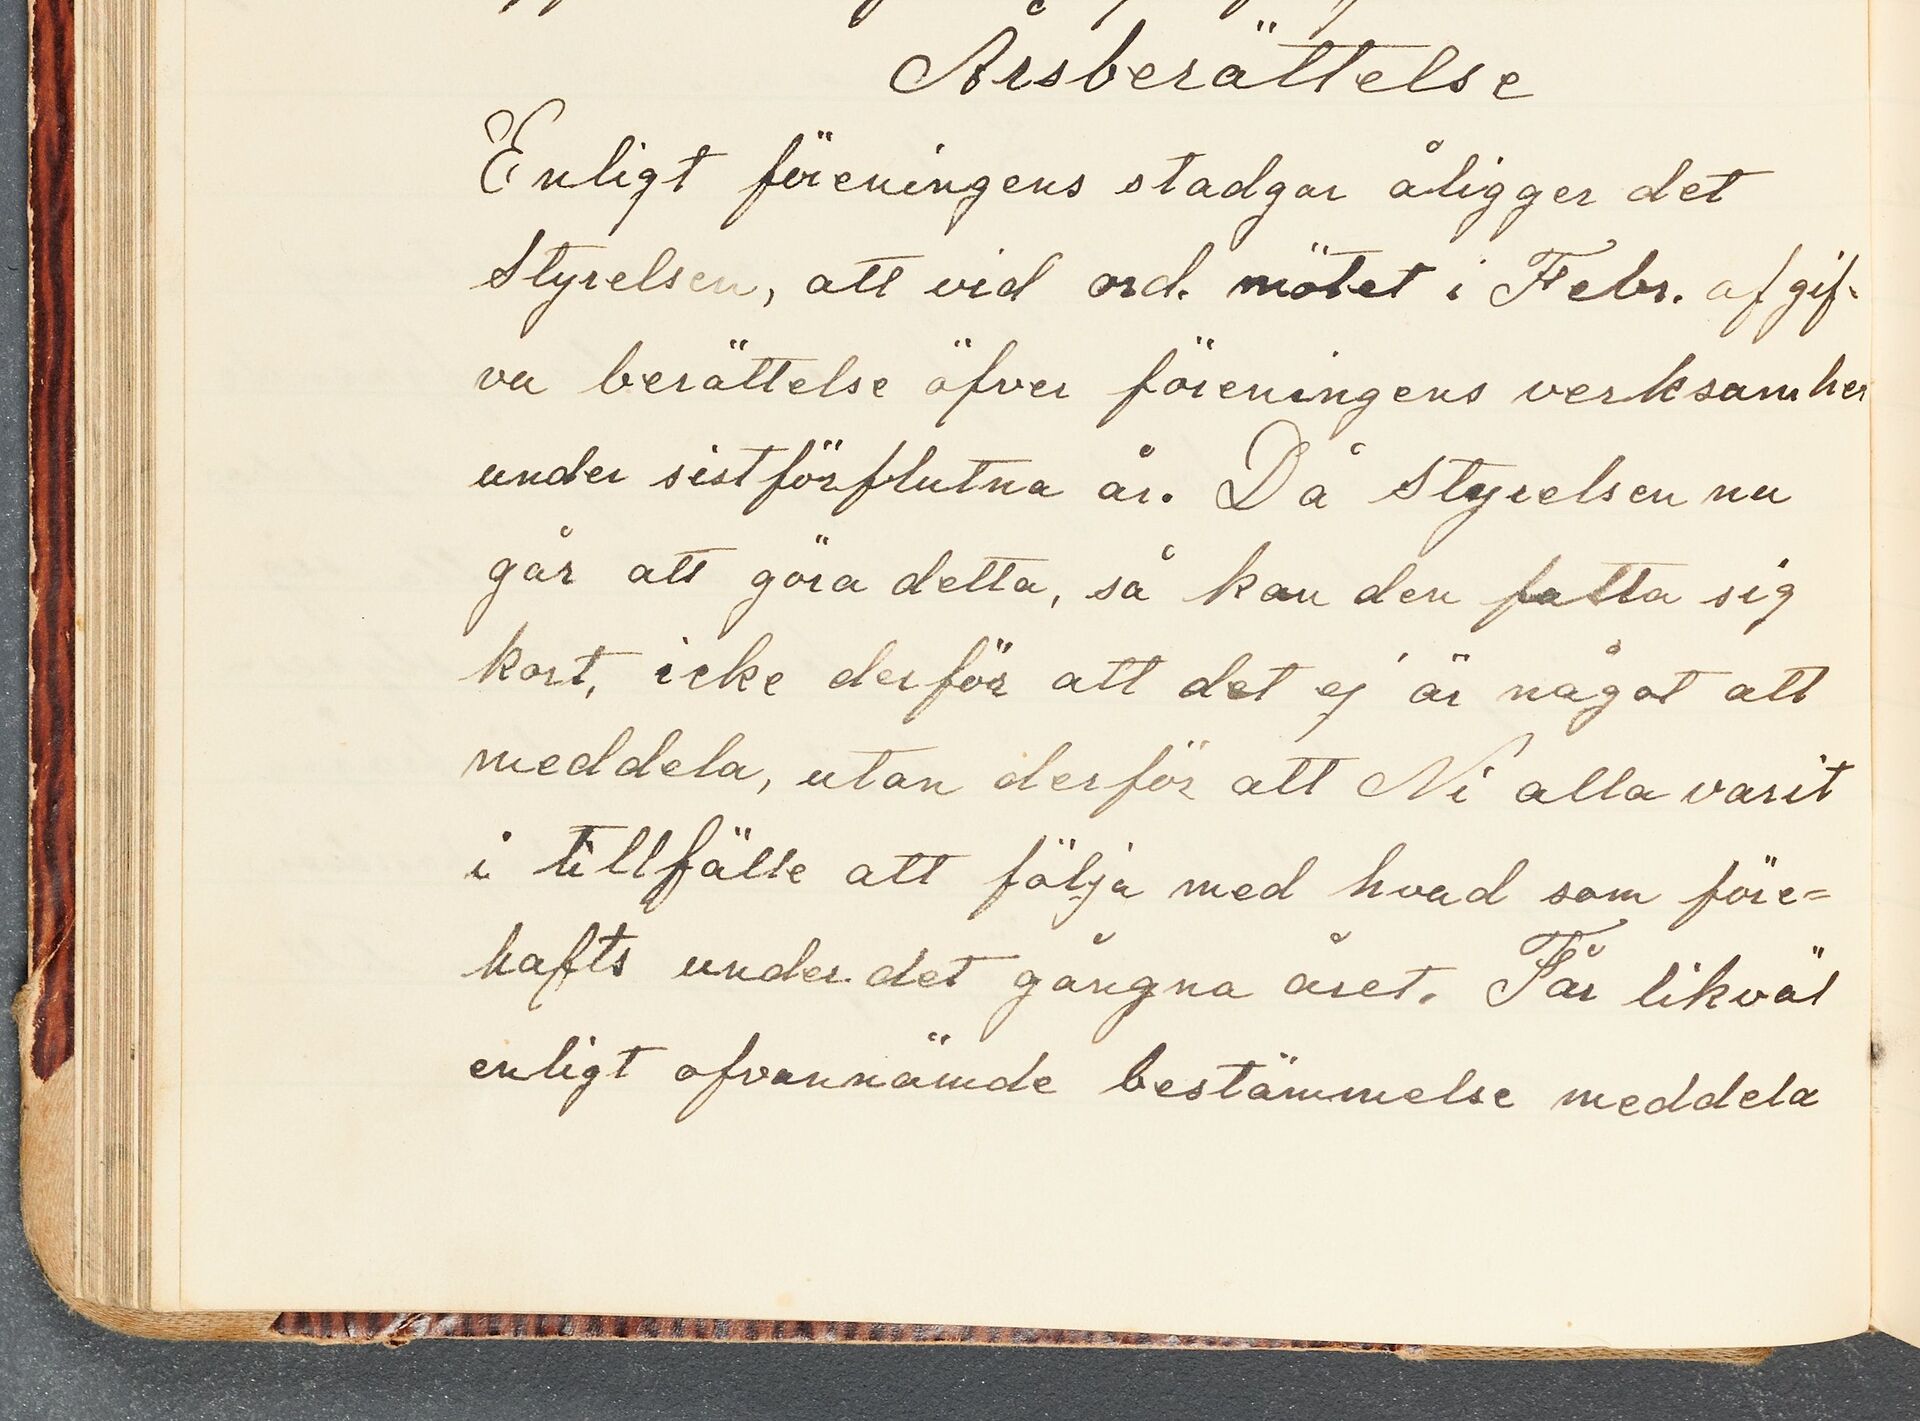 Årsberättelse
Enligt föreningens stadgar åligger det
Styrelsen, att vid ord. mötet i Febr. afgif-
va berättelse öfver föreningens verksamhet
under sistförflutna år. Då Styrelsen nu
går att göra detta, så kan den fatta sig
kort, icke derför att det ej är något att
meddela, utan derför att Ni alla varit
i tillfälle att följa med hvad som före=
hafts under det gångna året. Får likväl
enligt ofvannämde bestämmelse meddela